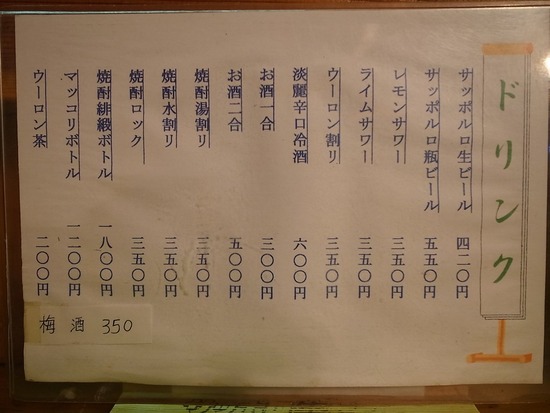 ドリンク
サッポルロ生ビール 四二〇円
サッポルロ瓶ビール 五五〇円
レモンサワー 三五〇円
ライムサワー 三五〇円
ウーロン割リ 三五〇円
淡麗辛口冷酒 六〇〇円
お酒一合 三〇〇円
お酒二合 五〇〇円
焼酎湯割リ 三五〇円
焼酎水割リ 三五〇円
焼酎ロック 三五〇円
焼酎緋緞ボトル 一八〇〇円
マッコリボトル 一二〇〇円
ウーロン茶 二〇〇円
梅酒 350